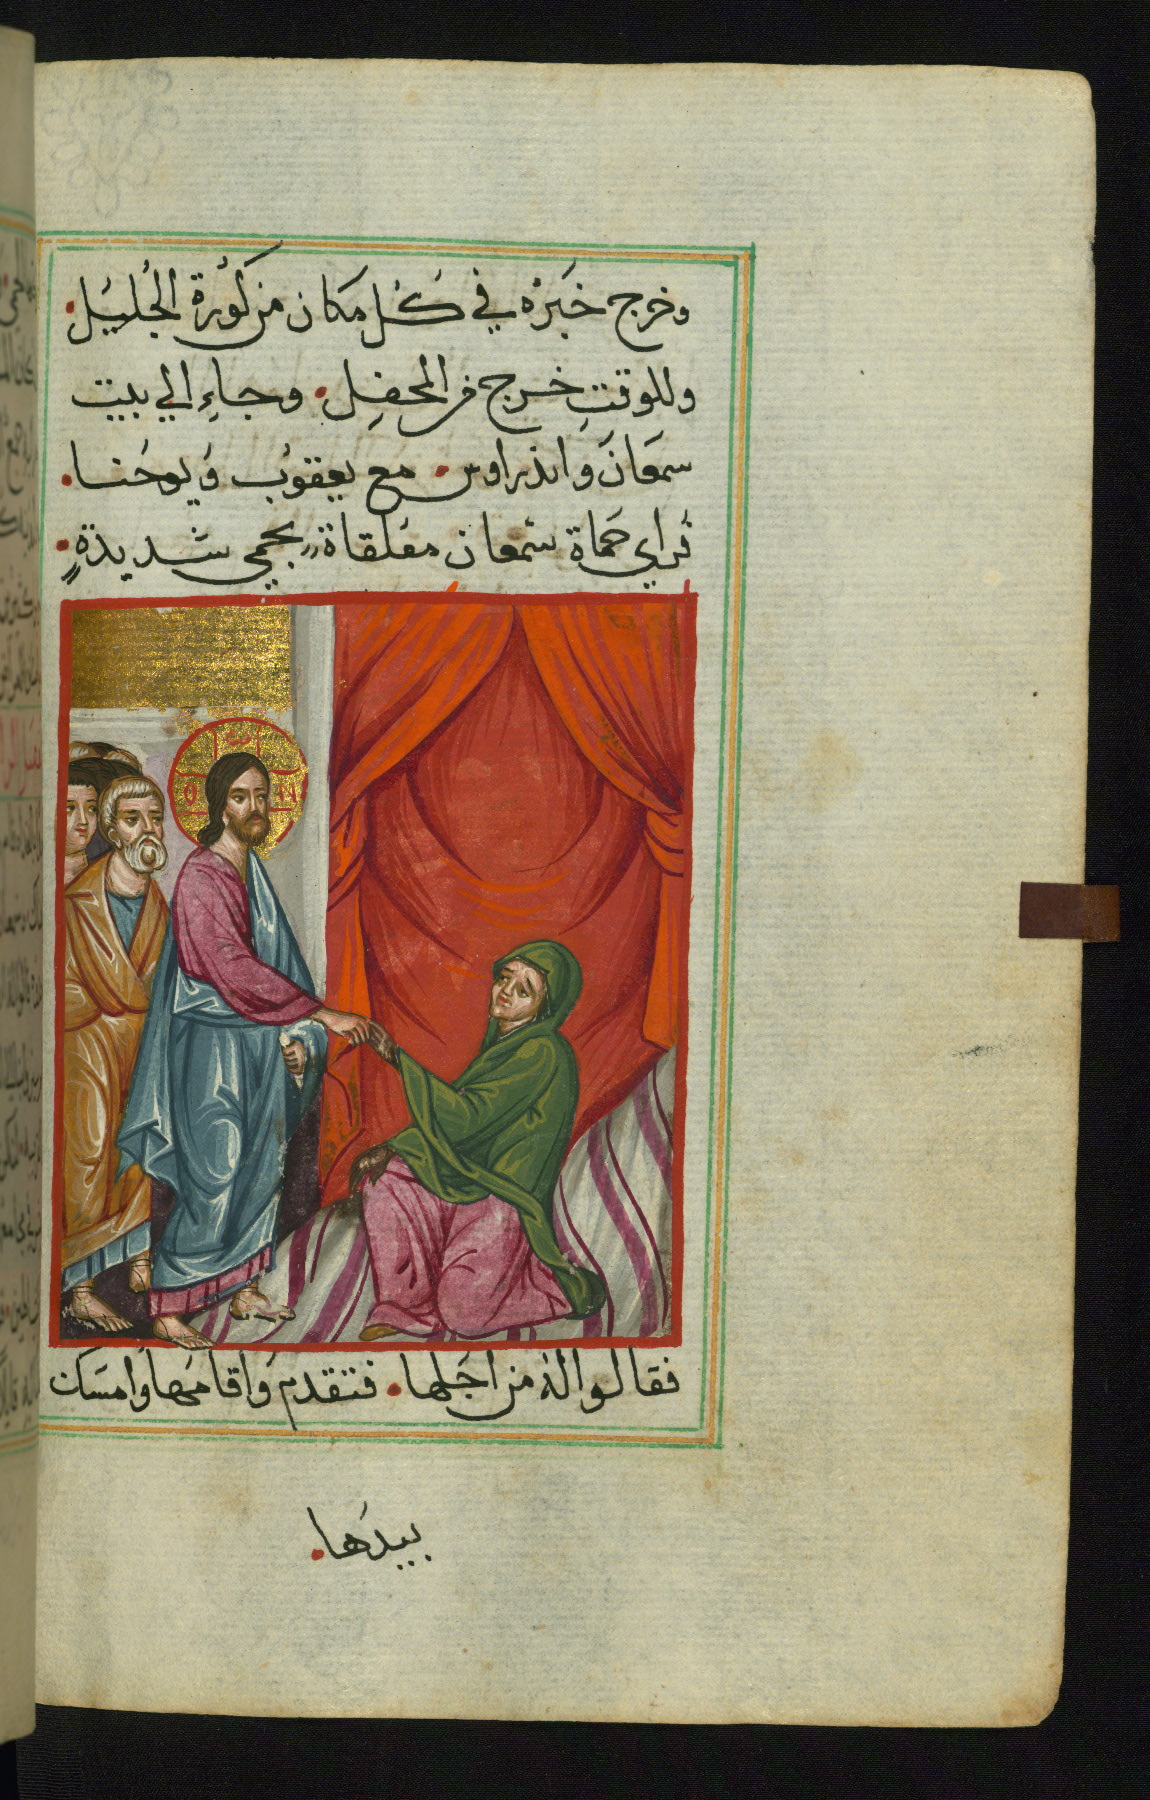 وخرج خَبَرُه في كُل مكان من كُورَة الجُليَل.
وللوقتِ خرج من المحفِل. وجاءِ الي بيت
سمعَانَ واندراوس. مع يعقوُب وَيوحَنا.
فراي حَماة سَمعان مقلقاة بحمي شديدةٍ.
فقالوا لهُ من اجَلها. فتقدم وَاقامَها وَامسَك
بيدَها.